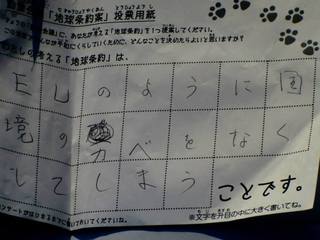 「地球条約案」投票用紙
に、あなたが考える「地球条約」を1つ提案してください。
んなが平和にくらしていくために、どんなことを決めたらよいと思いますか?
わたしの考える「地球条約」は、
EUのように国
境のカベをなく
してしまう
ことです。
※文字を升目の中に大きく書いてね。